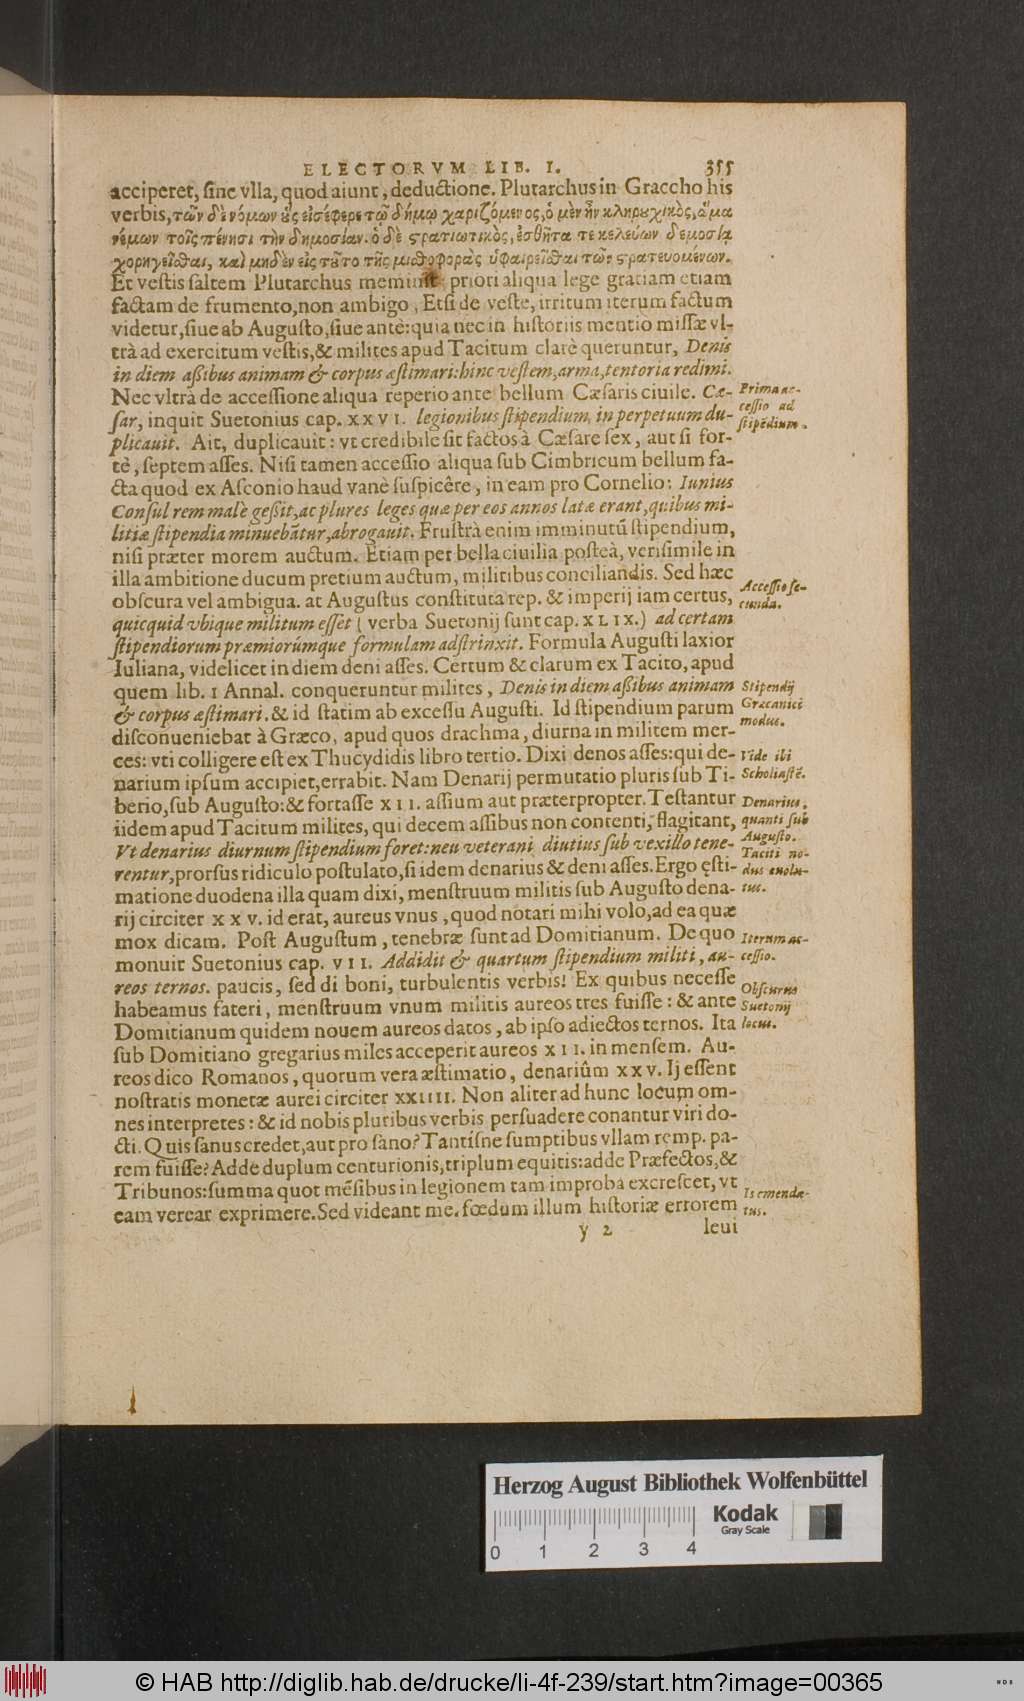 ELECTORVM LIB. I. 355
acciperet, ſine vlla, quod aiunt, deductione. Plutarchus in Graccho his
verbis, τῶν δὲ νόμων ȣ̓ς εἰσέφερε τῷ δήμῳ χαριζόμενος, ὁ μὲν ἦν κληρȣχικὸς, ἅμα
νέμων τοῖς πένησι τὴν δημοσίαν. ὁ δὲ ϛρατιωτικὸς, ἐσθῆτα τε κελεύων δεμοσίᾳ
χορηγεῖσθαι, καὶ μηδὲν εἰς τȣ͂το τῆς μισθοφορᾶς ὑφαιρεῖσθαι τῶν ϛρατευομένων.
Et veſtis ſaltem Plutarchus meminit: priori aliqua lege gratiam etiam
factam de frumento, non ambigo, Etſi de veſte, irritum iterum factum
videtur, ſiue ab Auguſto, ſiue antè: quia nec in hiſtoriis mentio miſſæ vl-
trà ad exercitum veſtis, & milites apud Tacitum clarè queruntur, Denis
in diem aßibus animam & corpus æſtimari: hinc veſtem, arma, tentoria redimi.
Nec vltrà de acceſſione aliqua reperio ante bellum Cæſaris ciuile. Cæ-
ſar, inquit Suetonius cap. XXVI. legionibus ſtipendium, in perpetuum du-
plicauit. Ait, duplicauit: vt credibile ſit factos à Cæſare ſex, aut ſi for-
tè, ſeptem aſſes. Niſi tamen acceſſio aliqua ſub Cimbricum bellum fa-
cta quod ex Aſconio haud vanè ſuſpicêre, in eam pro Cornelio: Iunius
Conſul rem malè geßit, ac plures leges quæ per eos annos latæ erant, quibus mi-
litiæ ſtipendia minuebātur, abrogauit. Fruſtrà enim imminutū ſtipendium,
niſi præter morem auctum. Etiam per bella ciuilia poſteà, veriſimile in
illa ambitione ducum pretium auctum, militibus conciliandis. Sed hæc
obſcura vel ambigua. at Auguſtus conſtituta rep. & imperij iam certus,
quicquid vbique militum eſſet (verba Suetonij ſunt cap. XLIX.) ad certam
ſtipendiorum præmiorúmque formulam adſtrinxit. Formula Auguſti laxior
Iuliana, videlicet in diem deni aſſes. Certum & clarum ex Tacito, apud
quem lib. 1 Annal. conqueruntur milites, Denis in diem aßibus animam
& corpus æſtimari. & id ſtatim ab exceſſu Auguſti. Id ſtipendium parum
diſconueniebat à Græco, apud quos drachma, diurna in militem mer-
ces: vti colligere eſt ex Thucydidis libro tertio. Dixi denos aſſes: qui de-
narium ipſum accipiet, errabit. Nam Denarij permutatio pluris ſub Ti-
berio, ſub Auguſto: & fortaſſe XII. aſſium aut præterpropter. Teſtantur
iidem apud Tacitum milites, qui decem aſſibus non contenti, flagitant,
Vt denarius diurnum ſtipendium foret: neu veterani diutius ſub vexillo tene-
rentur, prorſus ridiculo poſtulato, ſi idem denarius & deni aſſes. Ergo ęſti-
matione duodena illa quam dixi, menſtruum militis ſub Auguſto dena-
rij circiter XXV. id erat, aureus vnus, quod notari mihi volo, ad ea quæ
mox dicam. Poſt Auguſtum, tenebræ ſunt ad Domitianum. De quo
monuit Suetonius cap. VII. Addidit & quartum ſtipendium militi, au-
reos ternos. paucis, ſed di boni, turbulentis verbis! Ex quibus neceſſe
habeamus fateri, menſtruum vnum militis aureos tres fuiſſe: & ante
Domitianum quidem nouem aureos datos, ab ipſo adiectos ternos. Ita
ſub Domitiano gregarius miles acceperit aureos XII. in menſem. Au-
reos dico Romanos, quorum vera æſtimatio, denariûm XXV. Ij eſſent
noſtratis monetæ aurei circiter XXIIII. Non aliter ad hunc locum om-
nes interpretes: & id nobis pluribus verbis perſuadere conantur viri do-
cti. Quis ſanus credet, aut pro ſano? Tantíſne ſumptibus vllam remp. pa-
rem fuiſſe? Adde duplum centurionis, triplum equitis: adde Præfectos, &
Tribunos: ſumma quot mēſibus in legionem tam improba excreſcet, vt
eam verear exprimere. Sed videant me. fœdum illum hiſtoriæ errorem
y 2 leui
Prima ac-
ceſſio ad
ſtipēdium.
Acceſſio ſe-
cunda.
Stipendij
Græcanici
modus.
Vide ibi
Scholiaſtē.
Denarius,
quanti ſub
Auguſto.
Taciti no-
dus euolu-
tus.
Iterum ac-
ceſſio.
Obſcurus
Suetonij
locus.
Is emenda-
tus.
Herzog August Bibliothek Wolfenbüttel
0 1 2 3 4
Kodak
Gray Scale
© HAB http://diglib.hab.de/drucke/li-4f-239/start.htm?image=00365